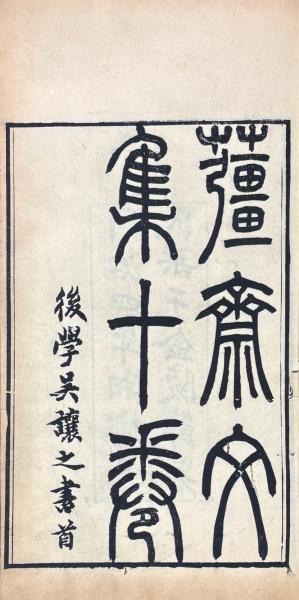 薑齋文
集十卷
後學吳讓之書首